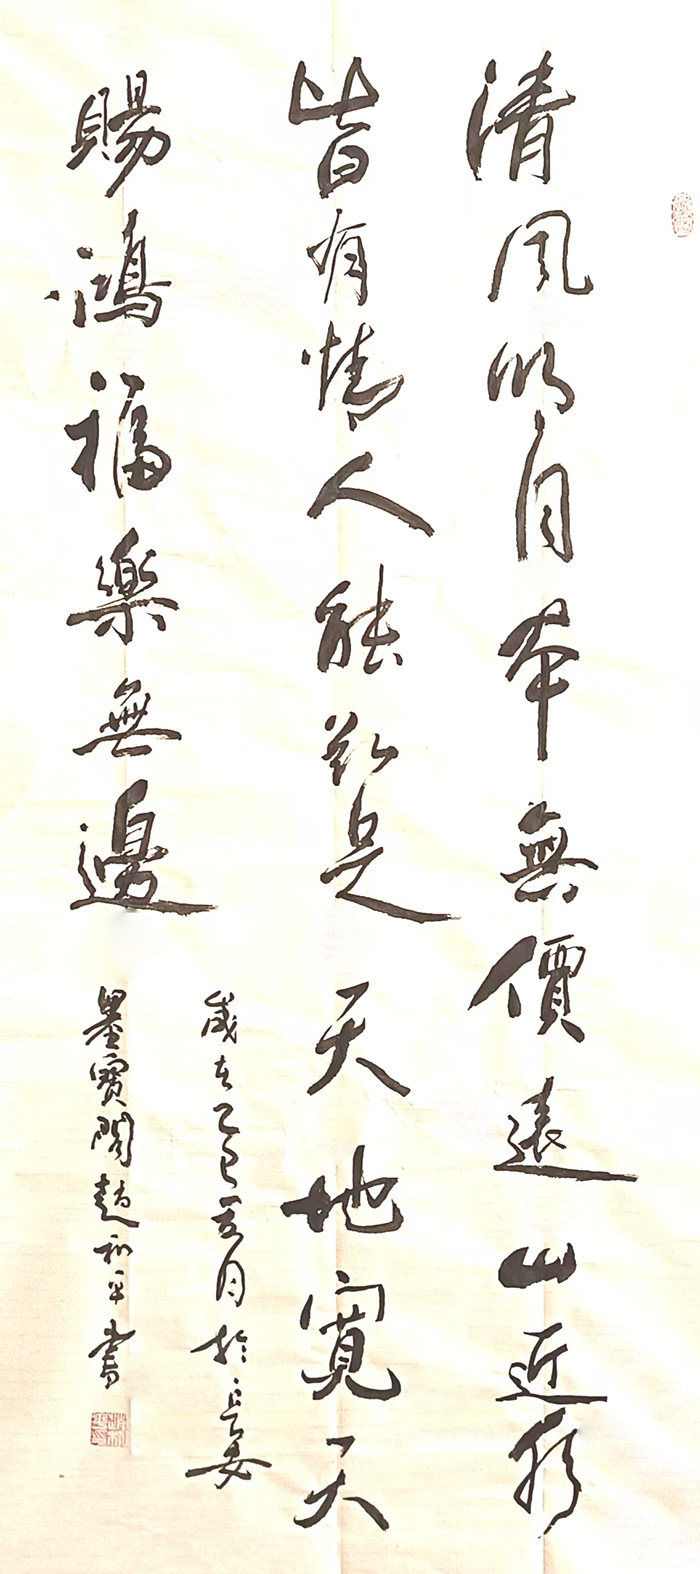 清风明月本無價遠山近水
皆有情人能知足天地寬天
賜鴻福樂無邊
歲在乙巳夏月於長安
墨寶閣趙和平書